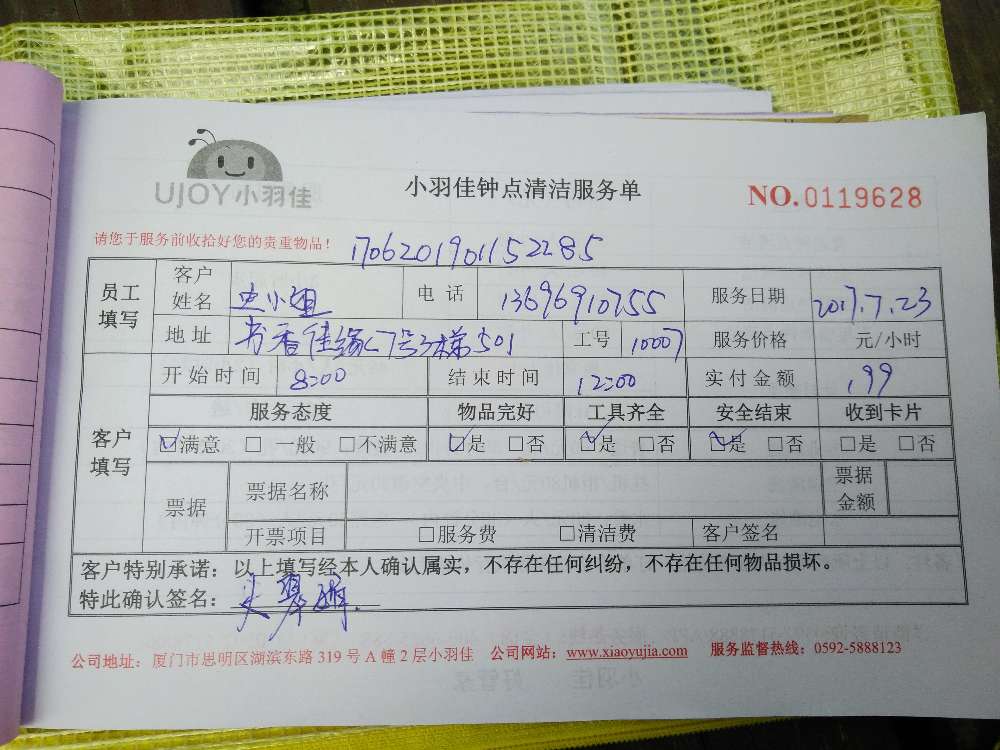 UJOY小羽佳
小羽佳钟点清洁服务单
NO.0119628
请您于服务前收拾好您的贵重物品！
1706201901152285
员工填写 客户姓名 史小姐 电话 13696910755 服务日期 2017.7.23
地址 书香佳缘 7号3梯501 工号 10007 服务价格 元/小时
客户填写 开始时间 8:00 结束时间 12:00 实付金额 199
服务态度 物品完好 工具齐全 安全结束 收到卡片
☑满意 □一般 □不满意 ☑是 □否 ☑是 □否 ☑是 □否 □是 □否
票据 票据名称 票据金额
开票项目 □服务费 □清洁费 客户签名
客户特别承诺：以上填写经本人确认属实，不存在任何纠纷，不存在任何物品损坏。
特此确认签名：
公司地址：厦门市思明区湖滨东路319号A幢2层小羽佳 公司网站：www.xiaoyujia.com 服务监督热线：0592-5888123